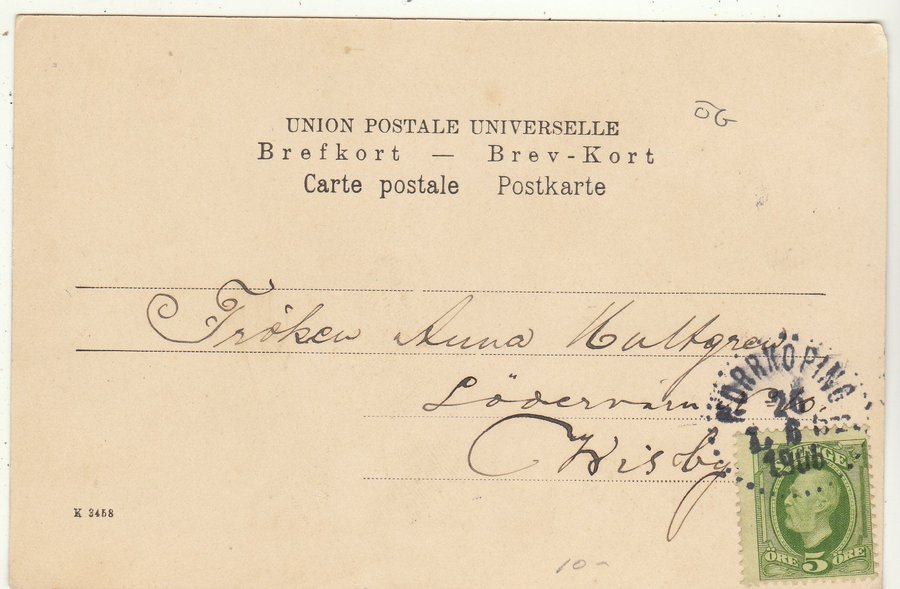 ÖG
UNION POSTALE UNIVERSELLE
Brefkort — Brev-Kort
Carte postale Postkarte
Fröken Anna Hultgren
Södervärn
Wisby
NORRKÖPING
26
1906
SVERIGE
ÖRE 5 ÖRE
K 3458
10-